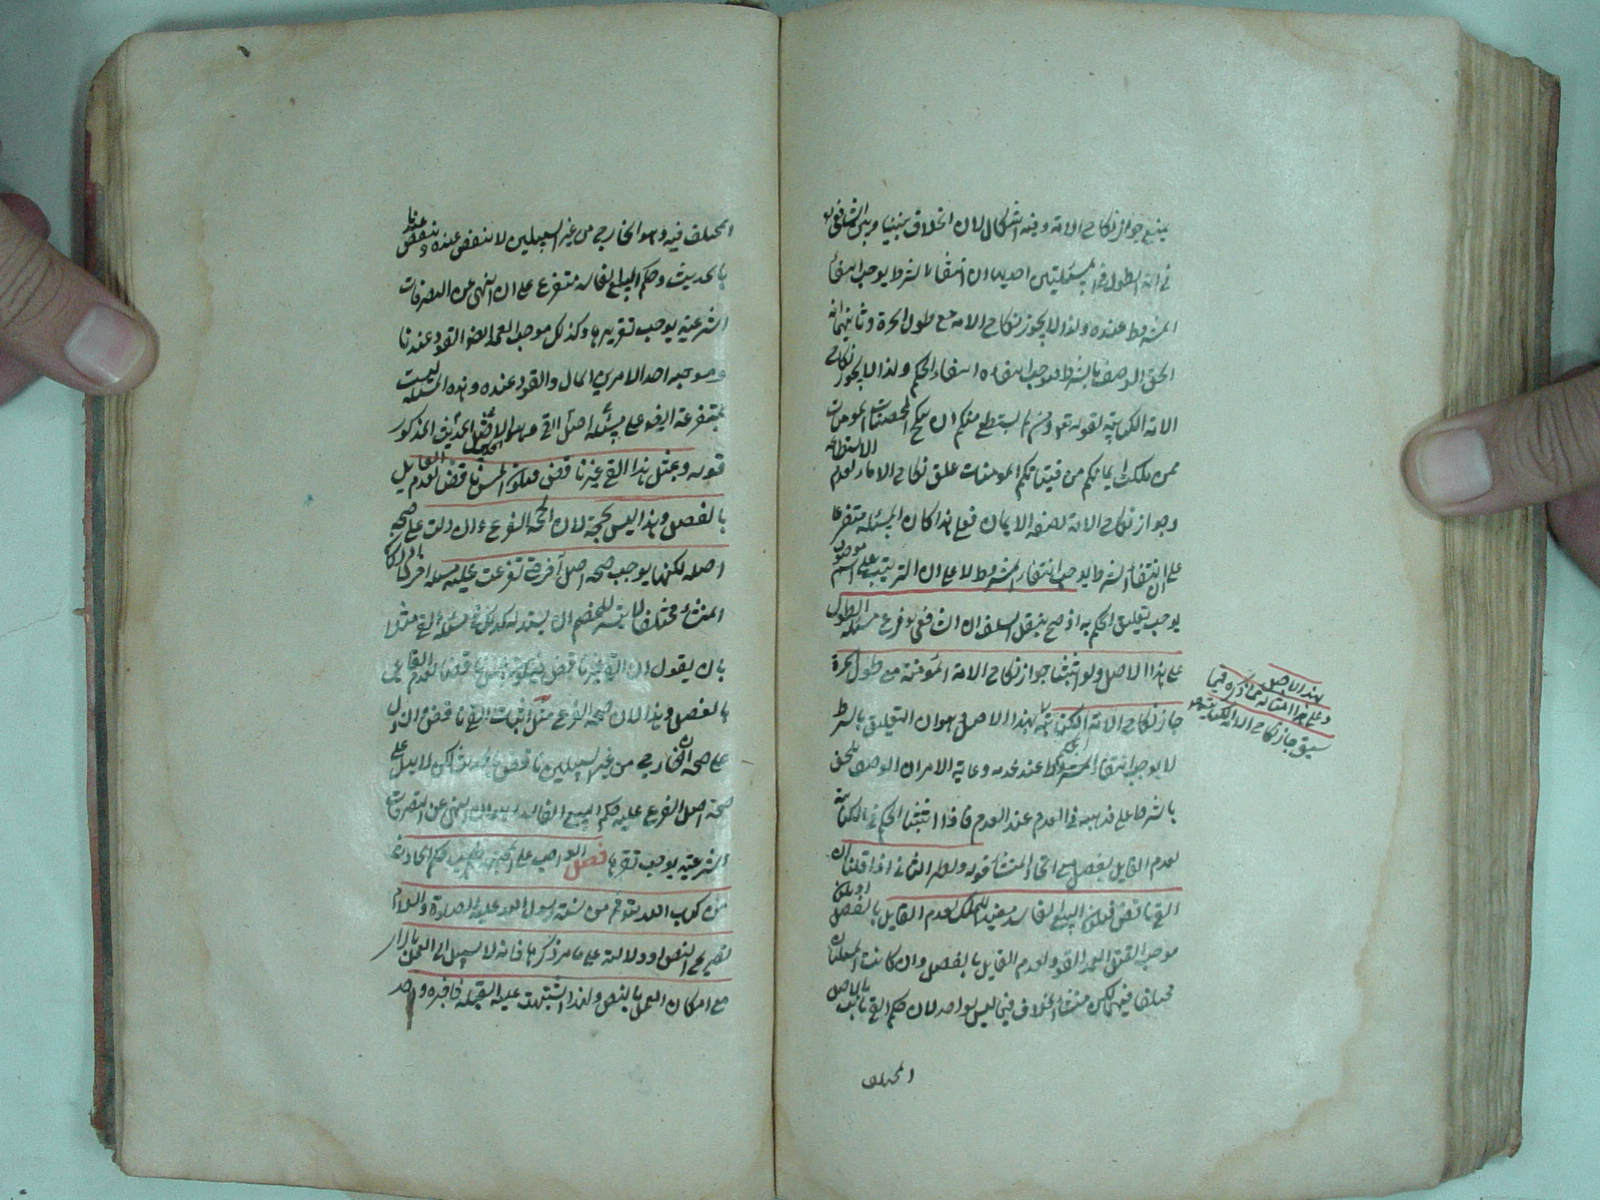 يمنع جواز نكاح الامة وفيه اشكال لان الخلاف بيننا وبين الشافعي
في ان الطول في مسئلتين احديهما ان انتفاء الشرط يوجب انتفاء
المشروط عنده ولذا لا يجوز نكاح الامة مع طول الحرة وثانيهما ان
الحق الوصف بالشرط فاوجب انتفاءه انتفاء الحكم ولذا لا يجوز نكاح
الامة الكتابية لقوله تع ومن لم يستطع منكم ان ينكح المحصنات المومنات
ممن ملكت ايمانكم من فتياتكم المومنات علق نكاح الاماء لعدم الاستطاعة
وجواز نكاح الامة بصفة الايمان فعلى هذا كان المسئلة متفرعا
على ان انتفاء الشرط يوجب انتفاء المشروط لا على ان الترتيب على اسم موصوف
يوجب تعليق الحكم به اذ صح بنقل السلف ان الشافعي فرع مسئلة الطول
على هذا الاصل ولو اثبتنا جواز نكاح الامة المؤمنة مع طول الحرة
جاز نكاح الامة الكتابية بهذا الاصل وهو ان التعليق بالشرط
لا يوجب انتفاء الحكم المشروط عند عدمه وغاية الامر ان الوصف ملحق
بالشرط على مذهبه في العدم عند العدم فاذا اثبتنا الحكم في الكتابية
لعدم القايل بفصل مع اتحاد المنشأ قوله ونظير الثاني اذا قلنا ان
القئ ناقض فيكون البيع الفاسد مفيدا للملك لعدم القايل بالفصل او يكون
موجب القتل العمد القود لعدم القايل بالفصل وان كانت المسئلتان
مختلفا فيهما لكن منشأ الخلاف فيما ليس بواحد لان حكم القئ ثابت بالاصل
المختلف
بهذا الاصل
وعلى هذا امثاله مما ذكره فيما
سبق جاز نكاح الامة الكتابية
المختلف فيه وهو الخارج من غير السبيلين لا ينقض عنده وينقض عندنا
بالحديث وحكم البيع الفاسد متفرع على ان النهى عن التصرفات
الشرعية يوجب تقريرها وكذلك موجب العمد القود عندنا
وموجبه احد الامرين المال والقود عنده وهذه المسئلة ليست
بمتفرعة ايضو على مسئلة اصل القئ وهو الاصل الحديث المذكور
قوله وبمثل هذا القئ غير ناقض فيكون المس ناقضا لعدم القايل
بالفصل وهذا ليس بحجة لان صحة الفرع وان دلت على صحة
اصله لكنها لا يوجب صحة اصل آخر حتى تفرعت عليه مسئلة اخرى
المنشأ مختلف
بان يقول ان القئ غير ناقض فيكون المس ناقضا لعدم القايل
بالفصل وهذا لان صحة الفرع مثل اثبات القئ ناقض ان دل
على صحة ان الخارج من غير السبيلين ناقض لكن لا يدل على
صحة اصل الفرع عليه حكم البيع الفاسد وهو ان النهى عن التصرفات
الشرعية يوجب تقريرها فصل الواجب على المجتهد طلب حكم الحادثة
من كتاب الله تع ثم من سنة رسول الله عليه الصلاة والسلام
بصريح النص او دلالته على ما مر ذكرها فانه لا سبيل الى العمل بالراي
مع امكان العمل بالنص ولهذا اذا اشتبهت عليه القبلة فاخبره واحد